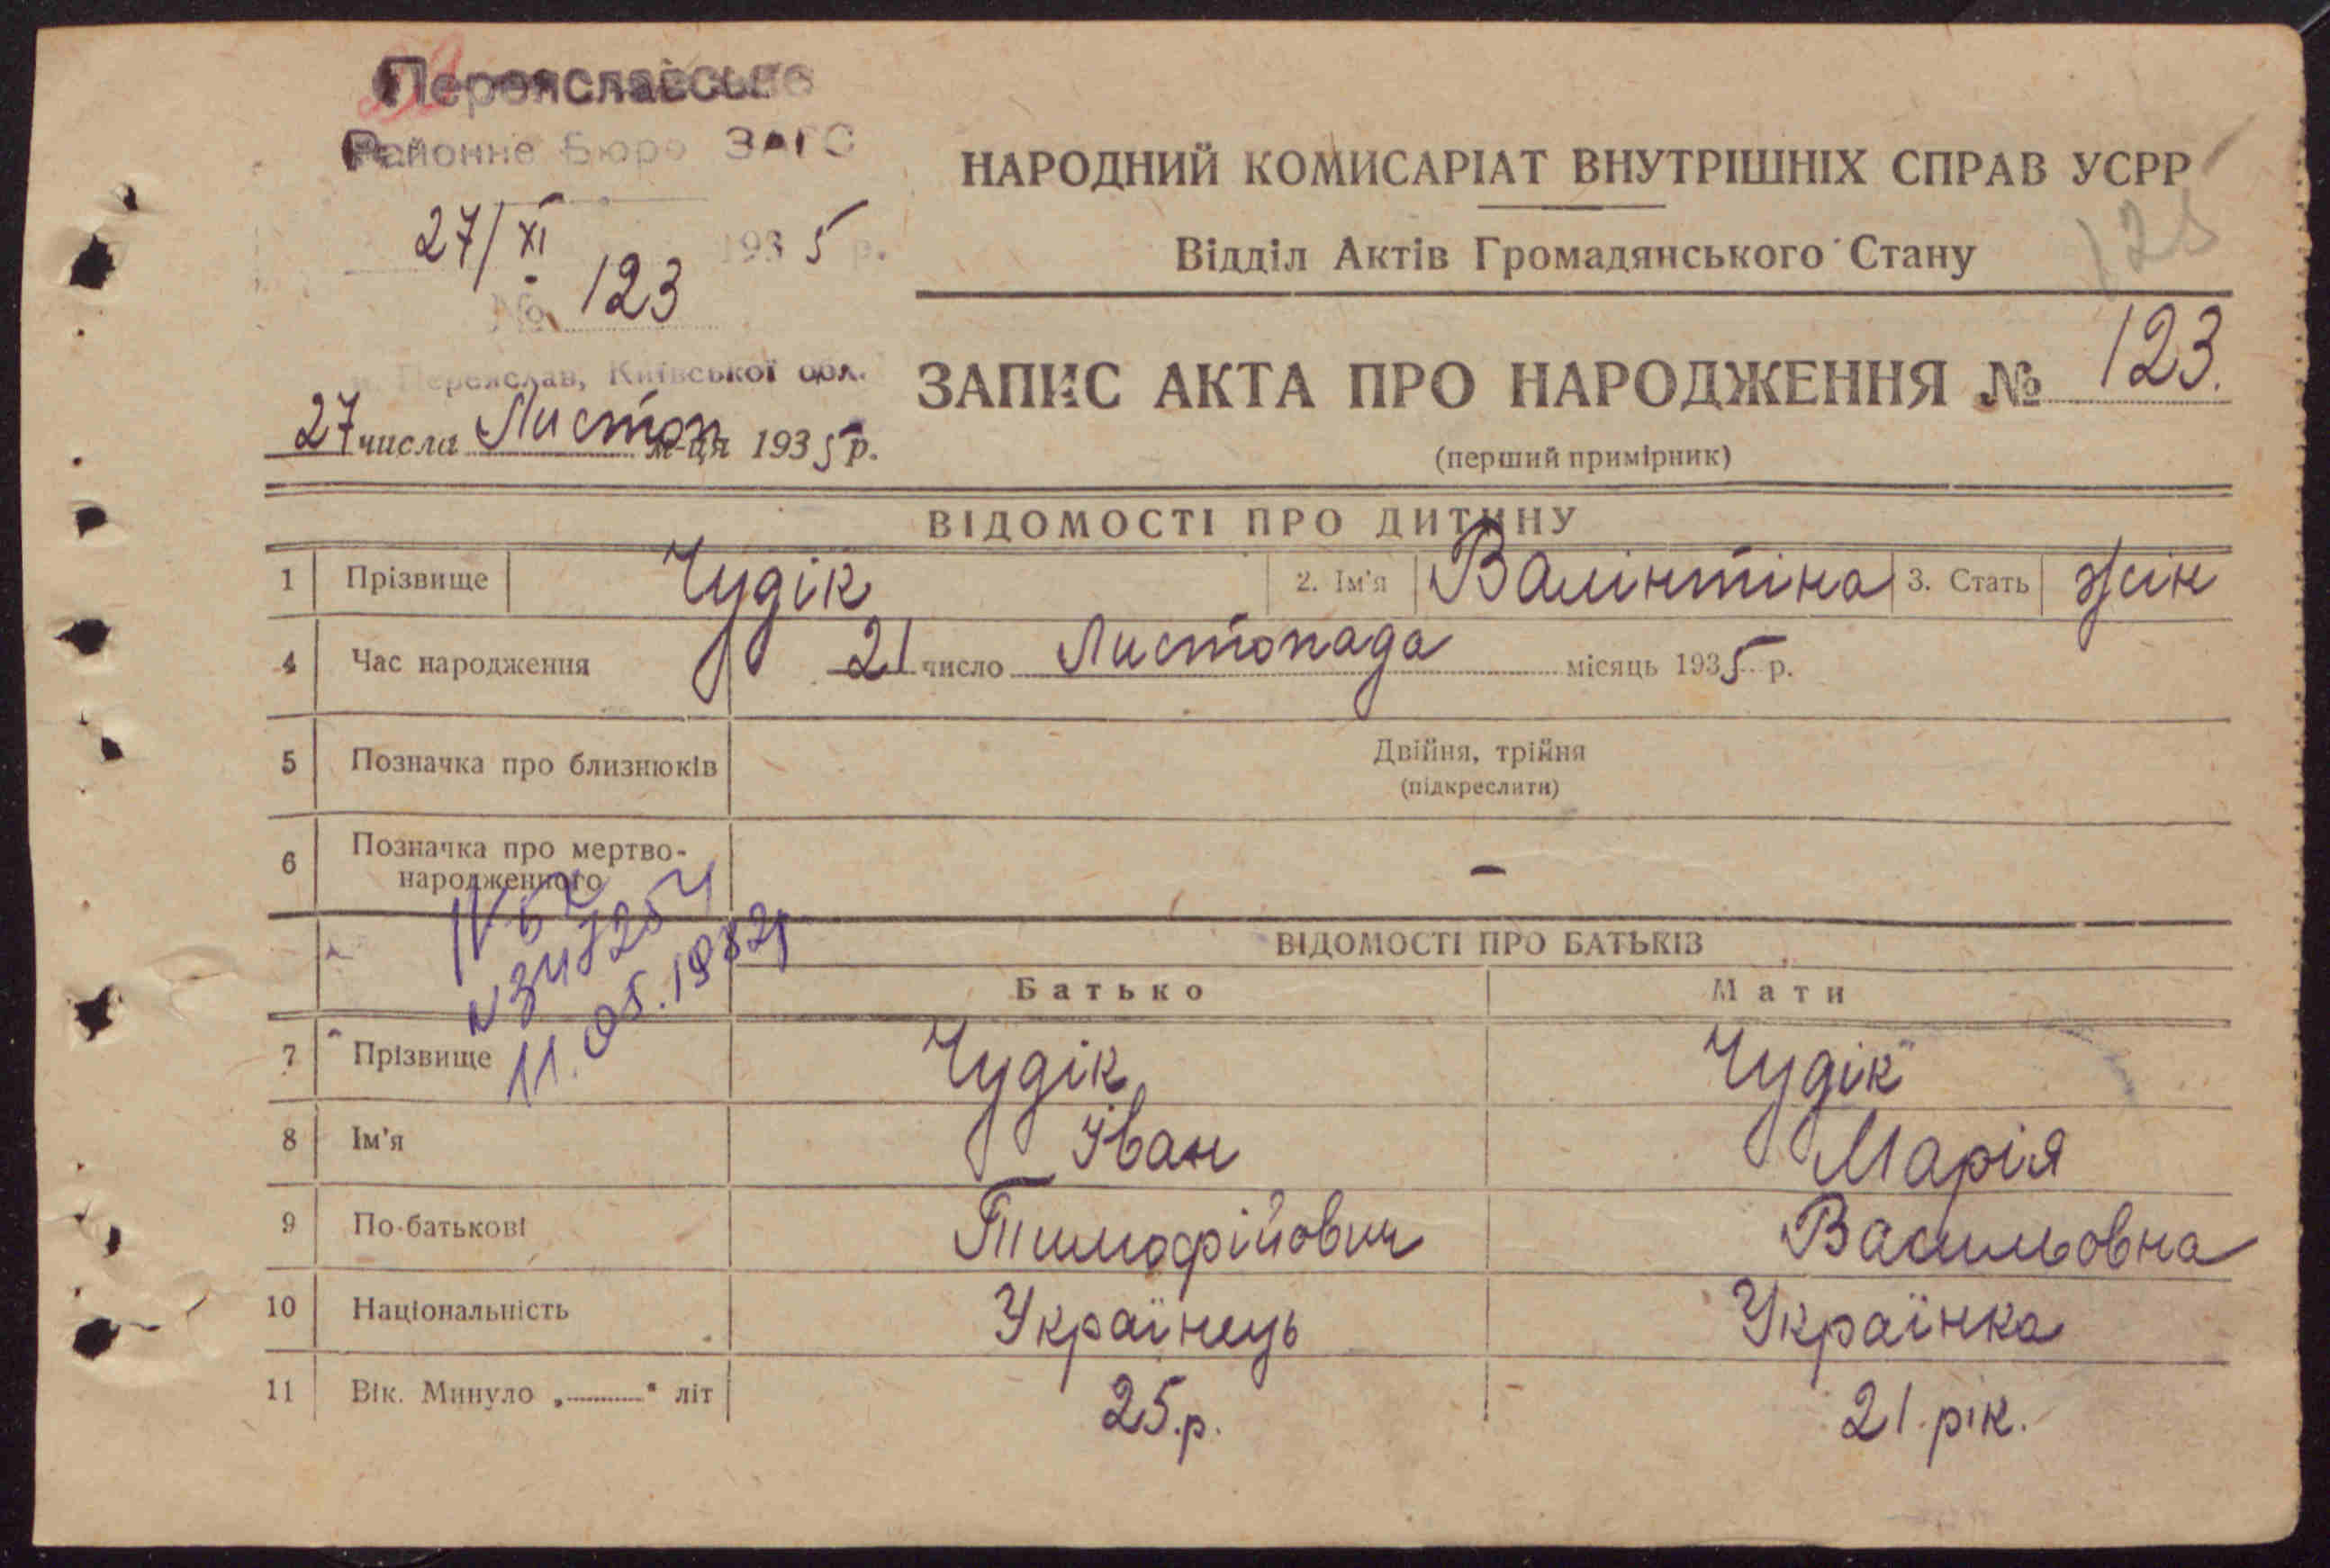 Переяславське
Районне Бюро ЗАГС
27/XI 1935 р.
№ 123
м. Переяслав, Київської обл.
27 числа Листоп м-ця 1935 р.
НАРОДНИЙ КОМИСАРІАТ ВНУТРІШНІХ СПРАВ УСРР
Відділ Актів Громадянського Стану
123
ЗАПИС АКТА ПРО НАРОДЖЕННЯ № 123.
(перший примірник)
ВІДОМОСТІ ПРО ДИТИНУ
1 Прізвище Чудік 2. Ім'я Валінтіна 3. Стать жін
4 Час народження 21 число Листопада місяць 1935 р.
5 Позначка про близнюків Двійня, трійня
(підкреслити)
6 Позначка про мертво-
народженного –
11.05.1982
ВІДОМОСТІ ПРО БАТЬКІВ
Батько Мати
7 Прізвище Чудік Чудік
8 Ім'я Іван Марія
9 По-батькові Тимофійович Васильовна
10 Національність Українець Українка
11 Вік. Минуло „ “ літ 25.р. 21 рік.